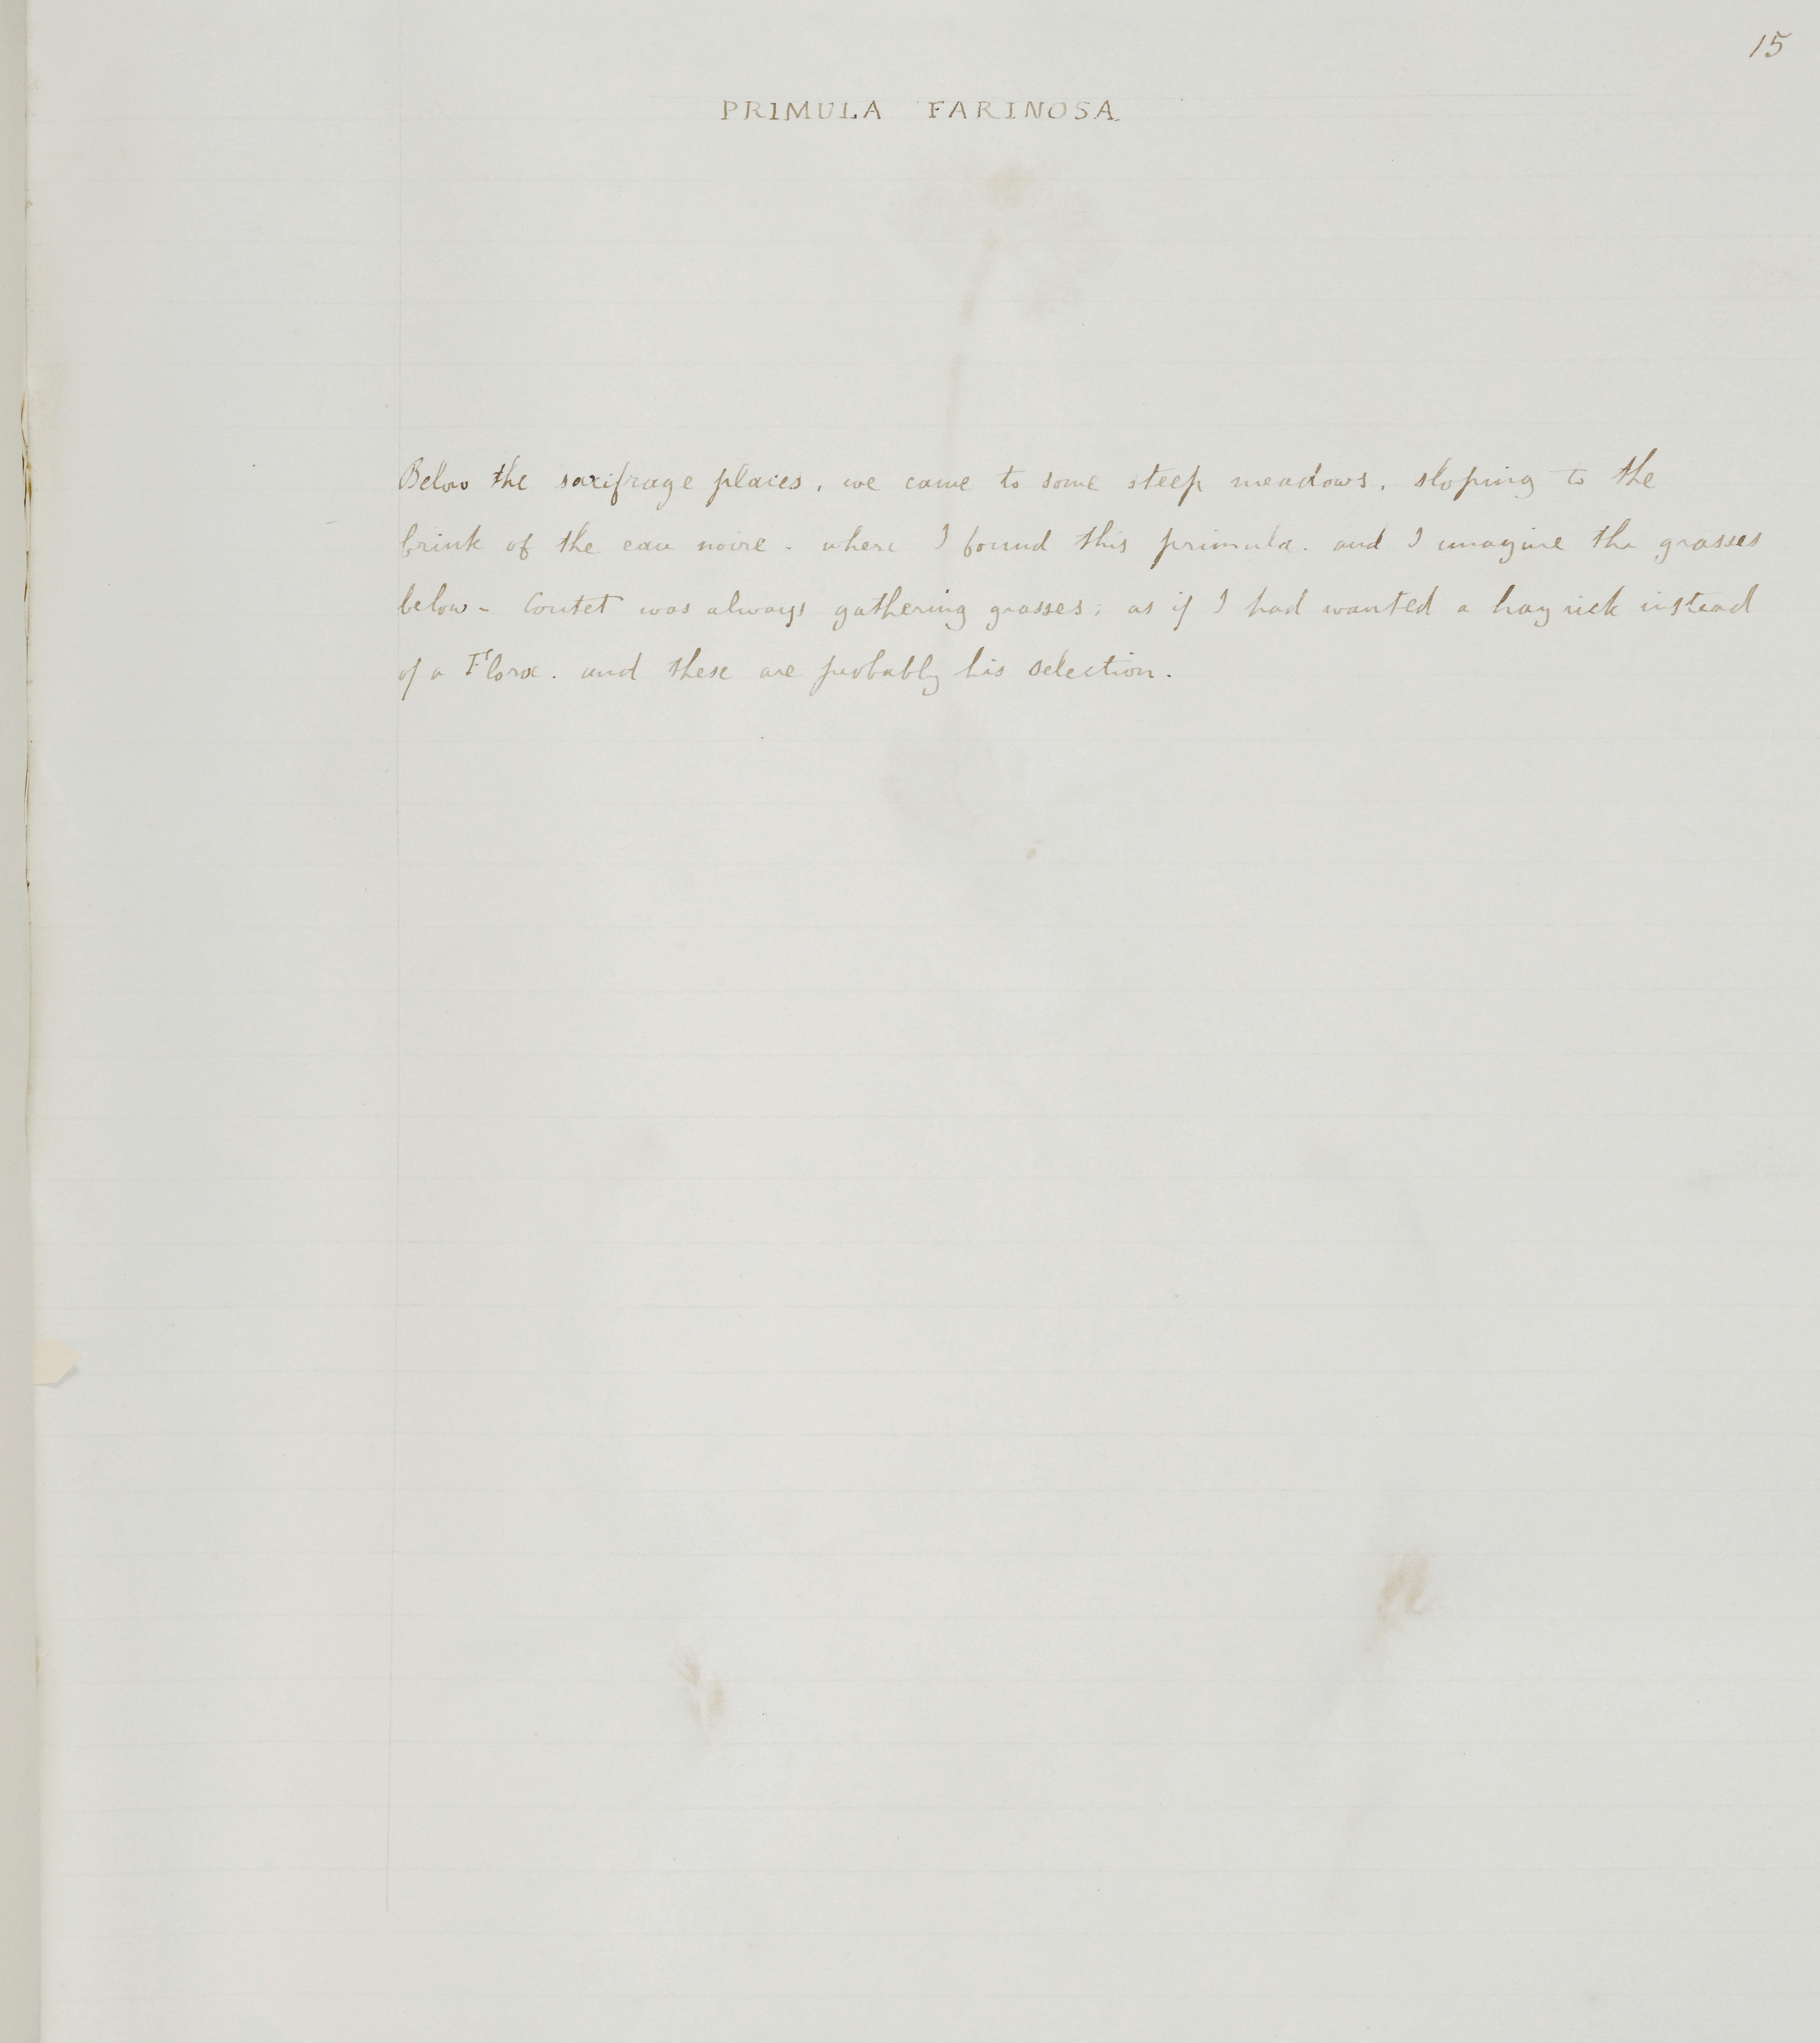 15
PRIMULA FARINOSA.
Below the saxifrage places, we came to some steep meadows, sloping to the
brink of the eau noire - where I found this primula. and I imagine the grasses
below - Coutet was always gathering grasses; as if I had wanted a hay rick instead
of a Flora. and these are probably his selection.